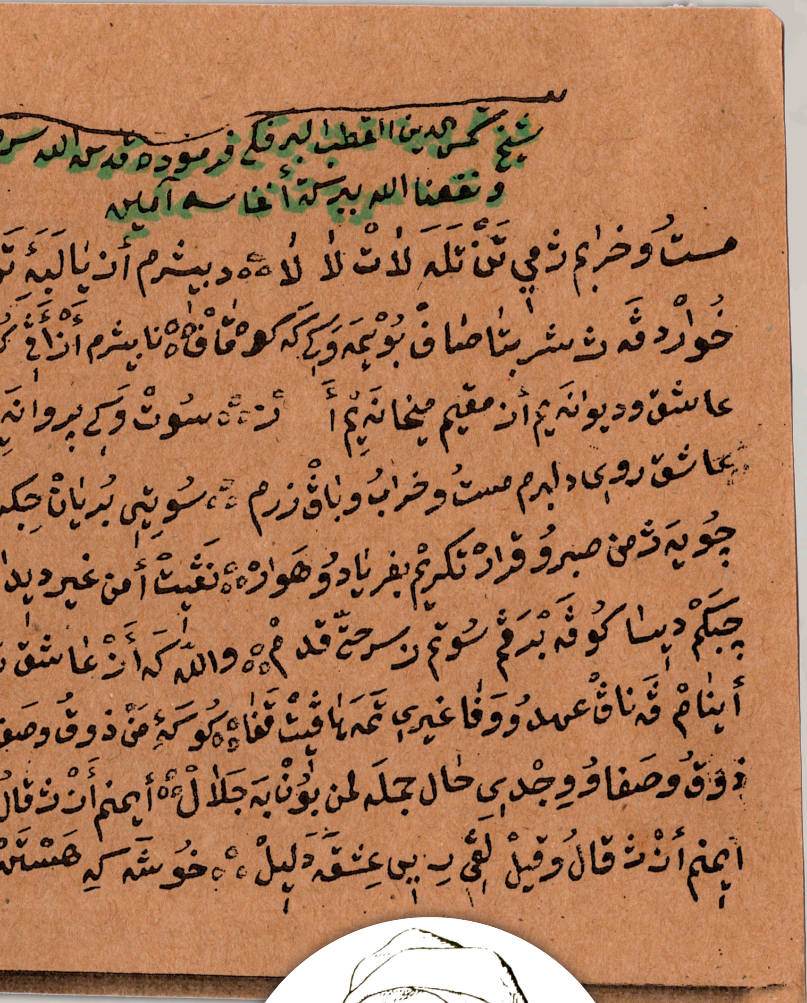 شيخ شمس الدين القطب البرفكي فرموده قدس الله سره
ونفعنا الله ببركة أنفاسه آمين
مستُ وَخرابم ژمي تَنْ تَلَه لَاتْ لَا لَا ؞ دبيشرم أز يا لَيَهْ
خُوارْد ڤَه ژ شربتا صاڤ بُوْيمَه وَكِي كَه كوه قَاڤْ ؞ نابيشرم أزْ
عاشق وديوانَه يم أز مقيم ميخانَه يِمْ أَز ؞ سُوتْ وَكِي پروانَه
عاشق روى دلبرم مستُ وخرابُ وباڤْ زرم ؞ سُوتيِى بُريانْ جِكر
چُويَه ژمن صبرُ وقرارْ تكريْم بفريادُ وهَوارْ ؞ نَڤيتْ أمن غير ديدا
جِبَكَمْ ديسا كُوڤَه بَرڤم سُوتم ز سرحتّى قدمْ ؞ واللّه كَه أَزْ عاشق
أينامْ ڤَه ناڤْ عهدُ ووَفَا غيرى تَمَه ناڤيتْ قَفا ؞ كُو كَهْ مَنْ ذوقُ وصَفا
ذوقُ وصَفا وُوِجْدىِ حال جملَه لمن بُوْنْ بَه جَلَالْ ؞ أيمنم أَزْ ژ قالُ
أيمنم أزْ ژ قالُ وقيلْ لِقَّىِ بِ بى عِشقَه دَليلْ ؞ خُوشَه كِه هَسْتَنْ